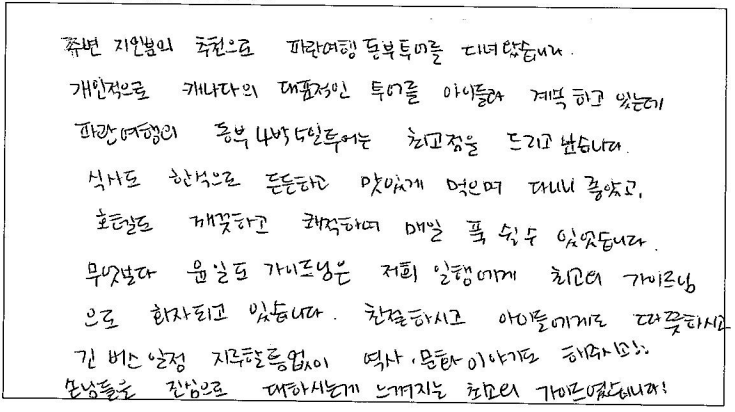 주변 지인분의 추천으로 파란여행 동부투어를 다녀왔습니다.
개인적으로 캐나다의 대표적인 투어를 아이들과 계속 하고 있는데
파란여행의 동부 4박5일투어는 최고점을 드리고 싶습니다.
식사도 한식으로 든든하고 맛있게 먹으며 다니니 좋았고,
호텔도 깨끗하고 쾌적하며 매일 푹 쉴 수 있었습니다.
무엇보다 윤일도 가이드님은 저희 일행에게 최고의 가이드님
으로 화자되고 있습니다. 친절하시고 아이들에게도 따뜻하시고
긴 버스일정 지루할틈없이 역사, 문화 이야기도 해주시고!!
손님들을 진심으로 대하시는게 느껴지는 최고의 가이드였습니다!